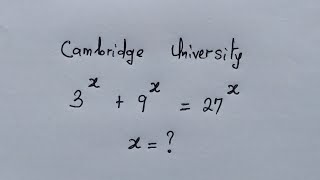 Cambridge University
3^x + 9^x = 27^x
x = ?